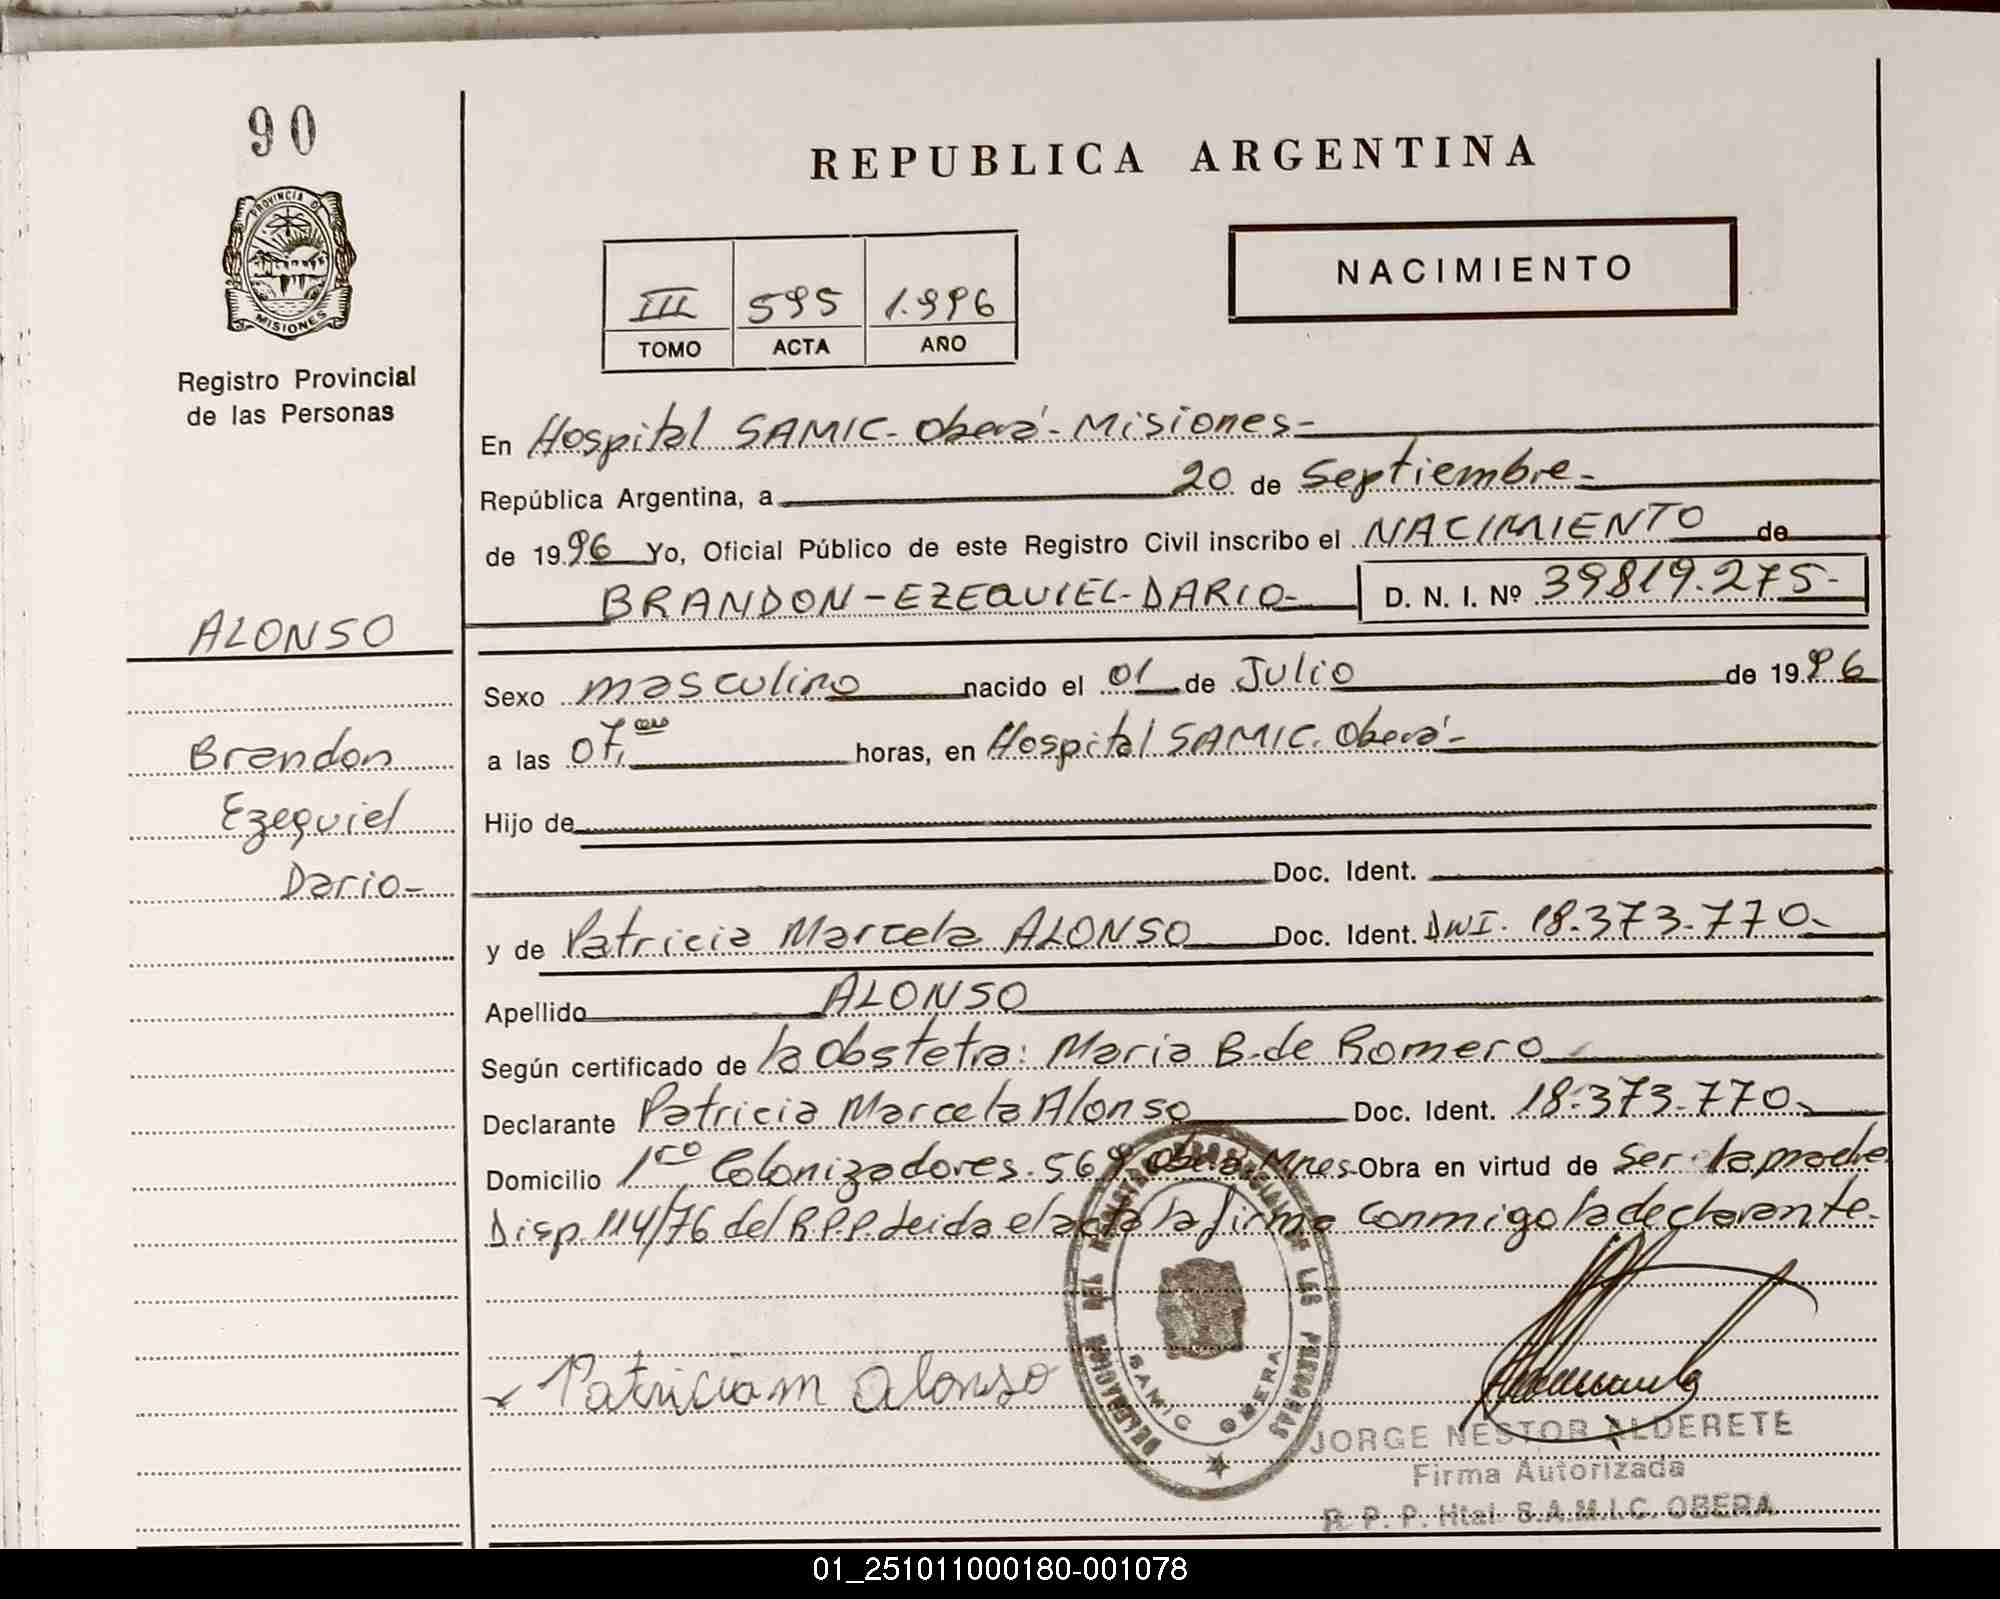 90
REPUBLICA ARGENTINA
PROVINCIA D
MISIONES
III 595 1.996
TOMO ACTA AÑO
NACIMIENTO
Registro Provincial
de las Personas
En Hospital SAMIC-Oberá-Misiones-
República Argentina, a 20 de Septiembre-
de 1996 Yo, Oficial Público de este Registro Civil inscribo el NACIMIENTO de
BRANDON-EZEQUIEL-DARIO- D. N. I. Nº 39819.275-
ALONSO
Brandon
Ezequiel
Dario-
Sexo masculino nacido el 01 de Julio de 1996
a las 07, horas, en Hospital SAMIC. Oberá-
Hijo de
Doc. Ident.
y de Patricia Marcela ALONSO Doc. Ident. DNI. 18.373.770-
Apellido ALONSO
Según certificado de la Obstetra: Maria B. de Romero
Declarante Patricia Marcela Alonso Doc. Ident. 18.373.770-
Domicilio 1ro Colonizadores. 569 Oberá-Mnes-Obra en virtud de Ser la madre
Disp. 114/76 del R.P.P. Leida el acta la firma conmigo la declarante-
Patricia m Alonso
DELEGACION DEL REGISTRO PROVINCIAL DE LAS PERSONAS
SAMIC OBERA
JORGE NESTOR ALDERETE
Firma Autorizada
R. P. P. Htal. S.A.M.I.C. OBERA
01_251011000180-001078